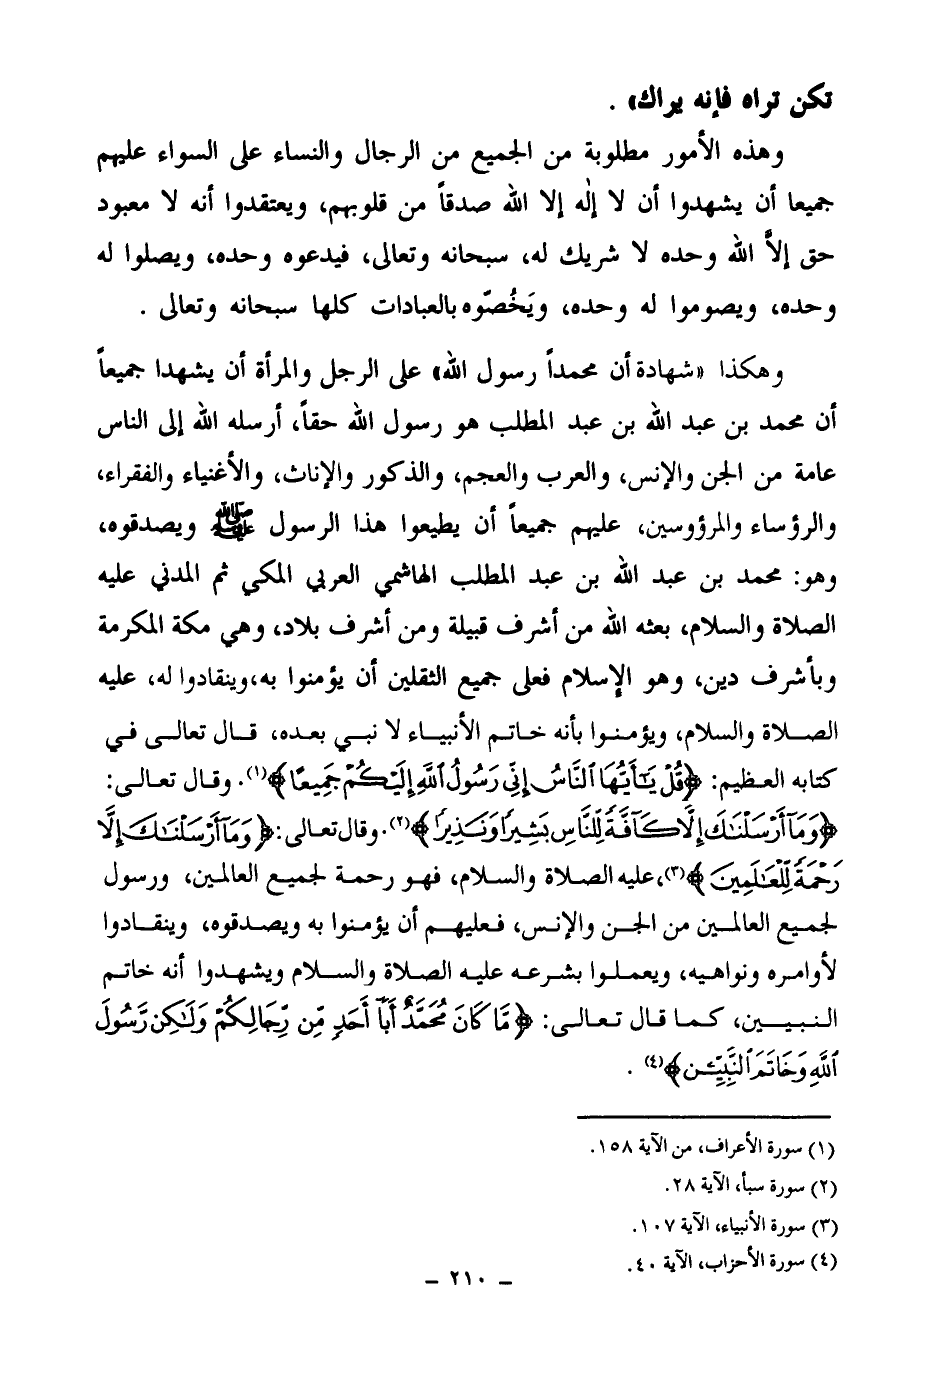 تكن تراه فإنه يراك» .
وهذه الأمور مطلوبة من الجميع من الرجال والنساء على السواء عليهم
جميعا أن يشهدوا أن لا إلٰه إلا الله صدقاً من قلوبهم، ويعتقدوا أنه لا معبود
حق إلاَّ الله وحده لا شريك له، سبحانه وتعالى، فيدعوه وحده، ويصلوا له
وحده، ويصوموا له وحده، ويَخُصّوه بالعبادات كلها سبحانه وتعالى .
وهكذا «شهادة أن محمداً رسول الله» على الرجل والمرأة أن يشهدا جميعاً
أن محمد بن عبد الله بن عبد المطلب هو رسول الله حقاً، أرسله الله إلى الناس
عامة من الجن والإنس، والعرب والعجم، والذكور والإناث، والأغنياء والفقراء،
والرؤساء والمرؤوسين، عليهم جميعاً أن يطيعوا هذا الرسول ﷺ ويصدقوه،
وهو: محمد بن عبد الله بن عبد المطلب الهاشمي العربي المكي ثم المدني عليه
الصلاة والسلام، بعثه الله من أشرف قبيلة ومن أشرف بلاد، وهي مكة المكرمة
وبأشرف دين، وهو الإسلام فعلى جميع الثقلين أن يؤمنوا به،وينقادوا له، عليه
الصلاة والسلام، ويؤمنوا بأنه خاتم الأنبياء لا نبي بعده، قال تعالى في
كتابه العظيم: ﴿قُلۡ يَـٰٓأَيُّهَا ٱلنَّاسُ إِنِّي رَسُولُ ٱللَّهِ إِلَيۡكُمۡ جَمِيعًا﴾(١). وقال تعالى:
﴿وَمَآ أَرۡسَلۡنَـٰكَ إِلَّا كَآفَّةٗ لِّلنَّاسِ بَشِيرٗا وَنَذِيرٗا﴾(٢). وقال تعالى: ﴿وَمَآ أَرۡسَلۡنَـٰكَ إِلَّا
رَحۡمَةٗ لِّلۡعَـٰلَمِينَ﴾(٣)، عليه الصلاة والسلام، فهو رحمة لجميع العالمين، ورسول
لجميع العالمين من الجن والإنس، فعليهم أن يؤمنوا به ويصدقوه، وينقادوا
لأوامره ونواهيه، ويعملوا بشرعه عليه الصلاة والسلام ويشهدوا أنه خاتم
النبيين، كما قال تعالى: ﴿مَّا كَانَ مُحَمَّدٌ أَبَآ أَحَدٖ مِّن رِّجَالِكُمۡ وَلَـٰكِن رَّسُولَ
ٱللَّهِ وَخَاتَمَ ٱلنَّبِيِّـۧنَ﴾(٤) .
(١) سورة الأعراف، من الآية ١٥٨.
(٢) سورة سبأ، الآية ٢٨.
(٣) سورة الأنبياء، الآية ١٠٧.
(٤) سورة الأحزاب، الآية ٤٠.
– ٢١٠ –